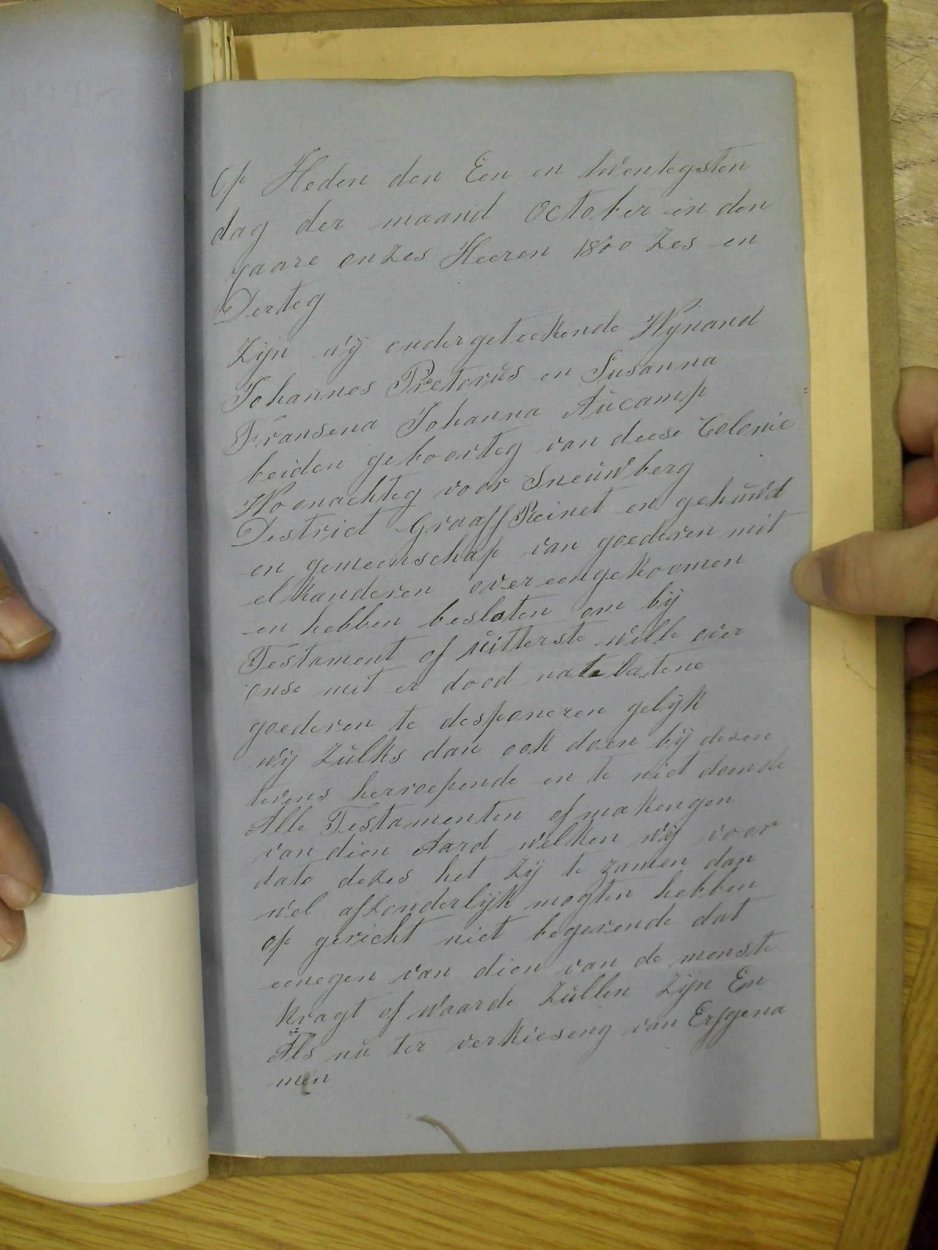 Op Heden den Een en twentegsten
dag der maand October in den
jaare onzes Heeren 1800 Zes en
Derteg
Zijn wij ondergeteekende Wijnand
Johannes Pretorius en Susanna
Fransena Johanna Aucamp
beiden geboorteg van deese Colonie
Woonachteg voor Sneuwberg
Destrict Graaff Reinet en gehuwd
en gemeenschap van goederen mit
el kanderen over eengekoomen
en hebben besloten om bij
Testament of uitterste wille over
onse mit er dood nate latene
goederen te desponeren gelijk
wij Zulks dan ook doen bij desen
tevens herroepende en te niet doende
Alle Testamenten of makengen
van dien Aard welken wij voor
dato dezes het zij te zamen dan
wel afzonderlijk mogten hebben
op gericht niet begerende dat
eenegen van dien van de menste
kragt of waarde Zullen Zijn En
Als nu ter verkieseng van Erfgena
men